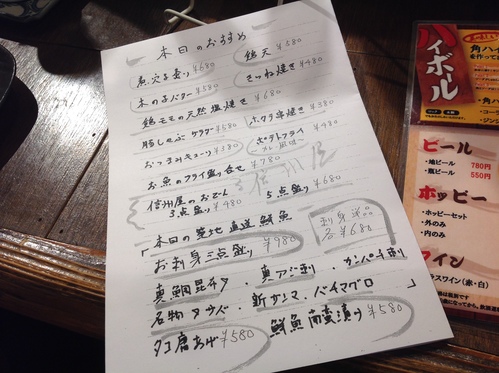 本日のおすすめ
鶏天 ¥580
煮穴子姿り ¥680
きつね焼き ¥480
木の子バター ¥580
鶏モモの天然塩焼き ¥680
豚しゃぶサラダ ¥580
ホタテ串焼き ¥380
おつまみキューリ ¥380
ポテトフライ ¥480
お魚のフライ盛り合せ ¥780
信州屋
信州屋のおでん
3点盛り ¥480
5点盛り ¥680
「本日の築地直送鮮魚
お刺身三点盛り ¥980
刺身単品
各¥680
真鯛昆布〆・真アジ刺・カンパチ刺
名物〆サバ・新サンマ・バチマグロ」
タコ唐あげ ¥580
鮮魚南蛮漬け ¥580
ハイボール
角ハイ
ビール
・地ビール 780円
・瓶ビール 550円
ホッピー
・ホッピーセット
・外のみ
・内のみ
ワイン
グラスワイン(赤・白)